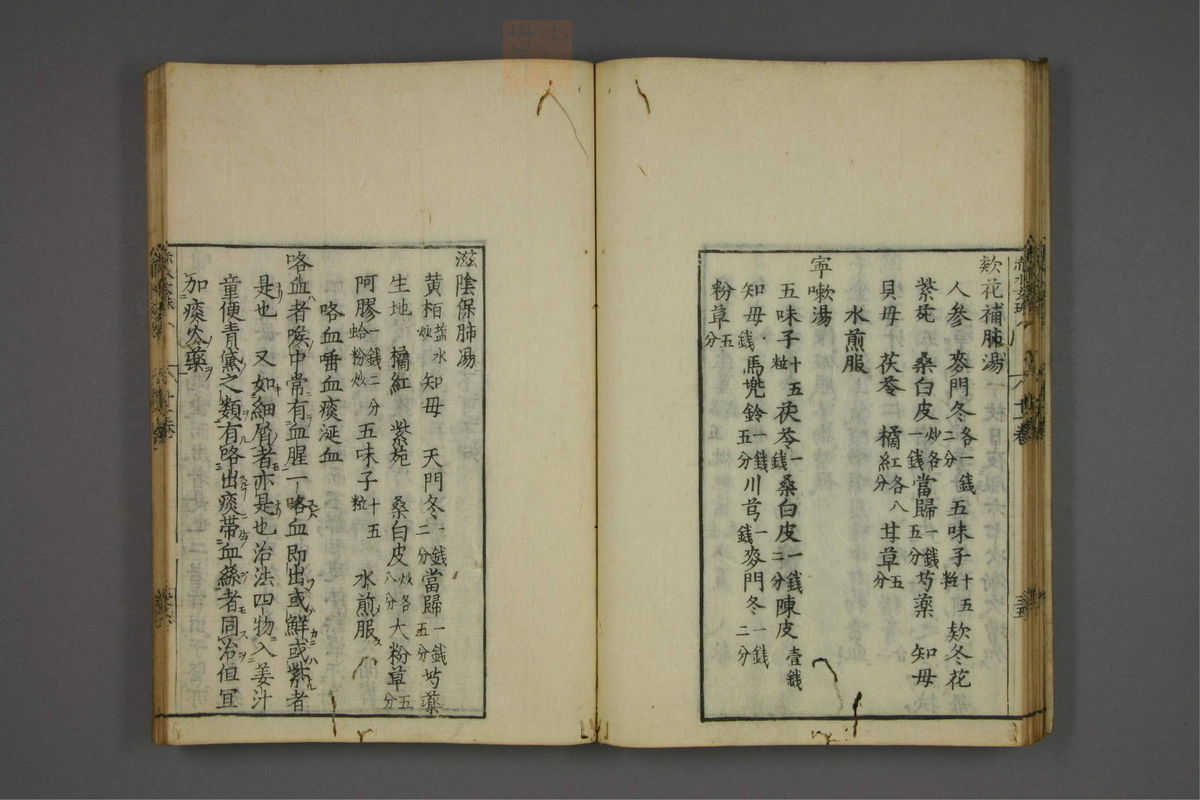 欸花補肺湯
人參 麥門冬各一錢二分 五味子十五粒 欸冬花
紫菀 桑白皮炒各一錢 當歸一錢五分 芍藥 知母
貝母 茯苓 橘紅各八分 甘草五分
水煎服
寜嗽湯
五味子十五粒 茯苓一錢 桑白皮一錢二分 陳皮壹錢
知母錢 馬兠鈴一錢五分 川芎一錢 麥門冬一錢二分
粉草五分
滋陰保肺湯
黄栢塩水炒 知母 天門冬一錢二分 當歸一錢五分 芍藥
生地 橘紅 紫菀 桑白皮炒各八分 大粉草五分
阿膠一錢二分蛤粉炒 五味子十五粒 水煎服
咯血唾血痰涎血
咯血者喉中常有血腥一咯血即出或鮮或紫者
是也 又如細屑者亦是也治法四物入姜汁
童便青黛之類有咯出痰帶血絲者同治但宜
加痰火藥